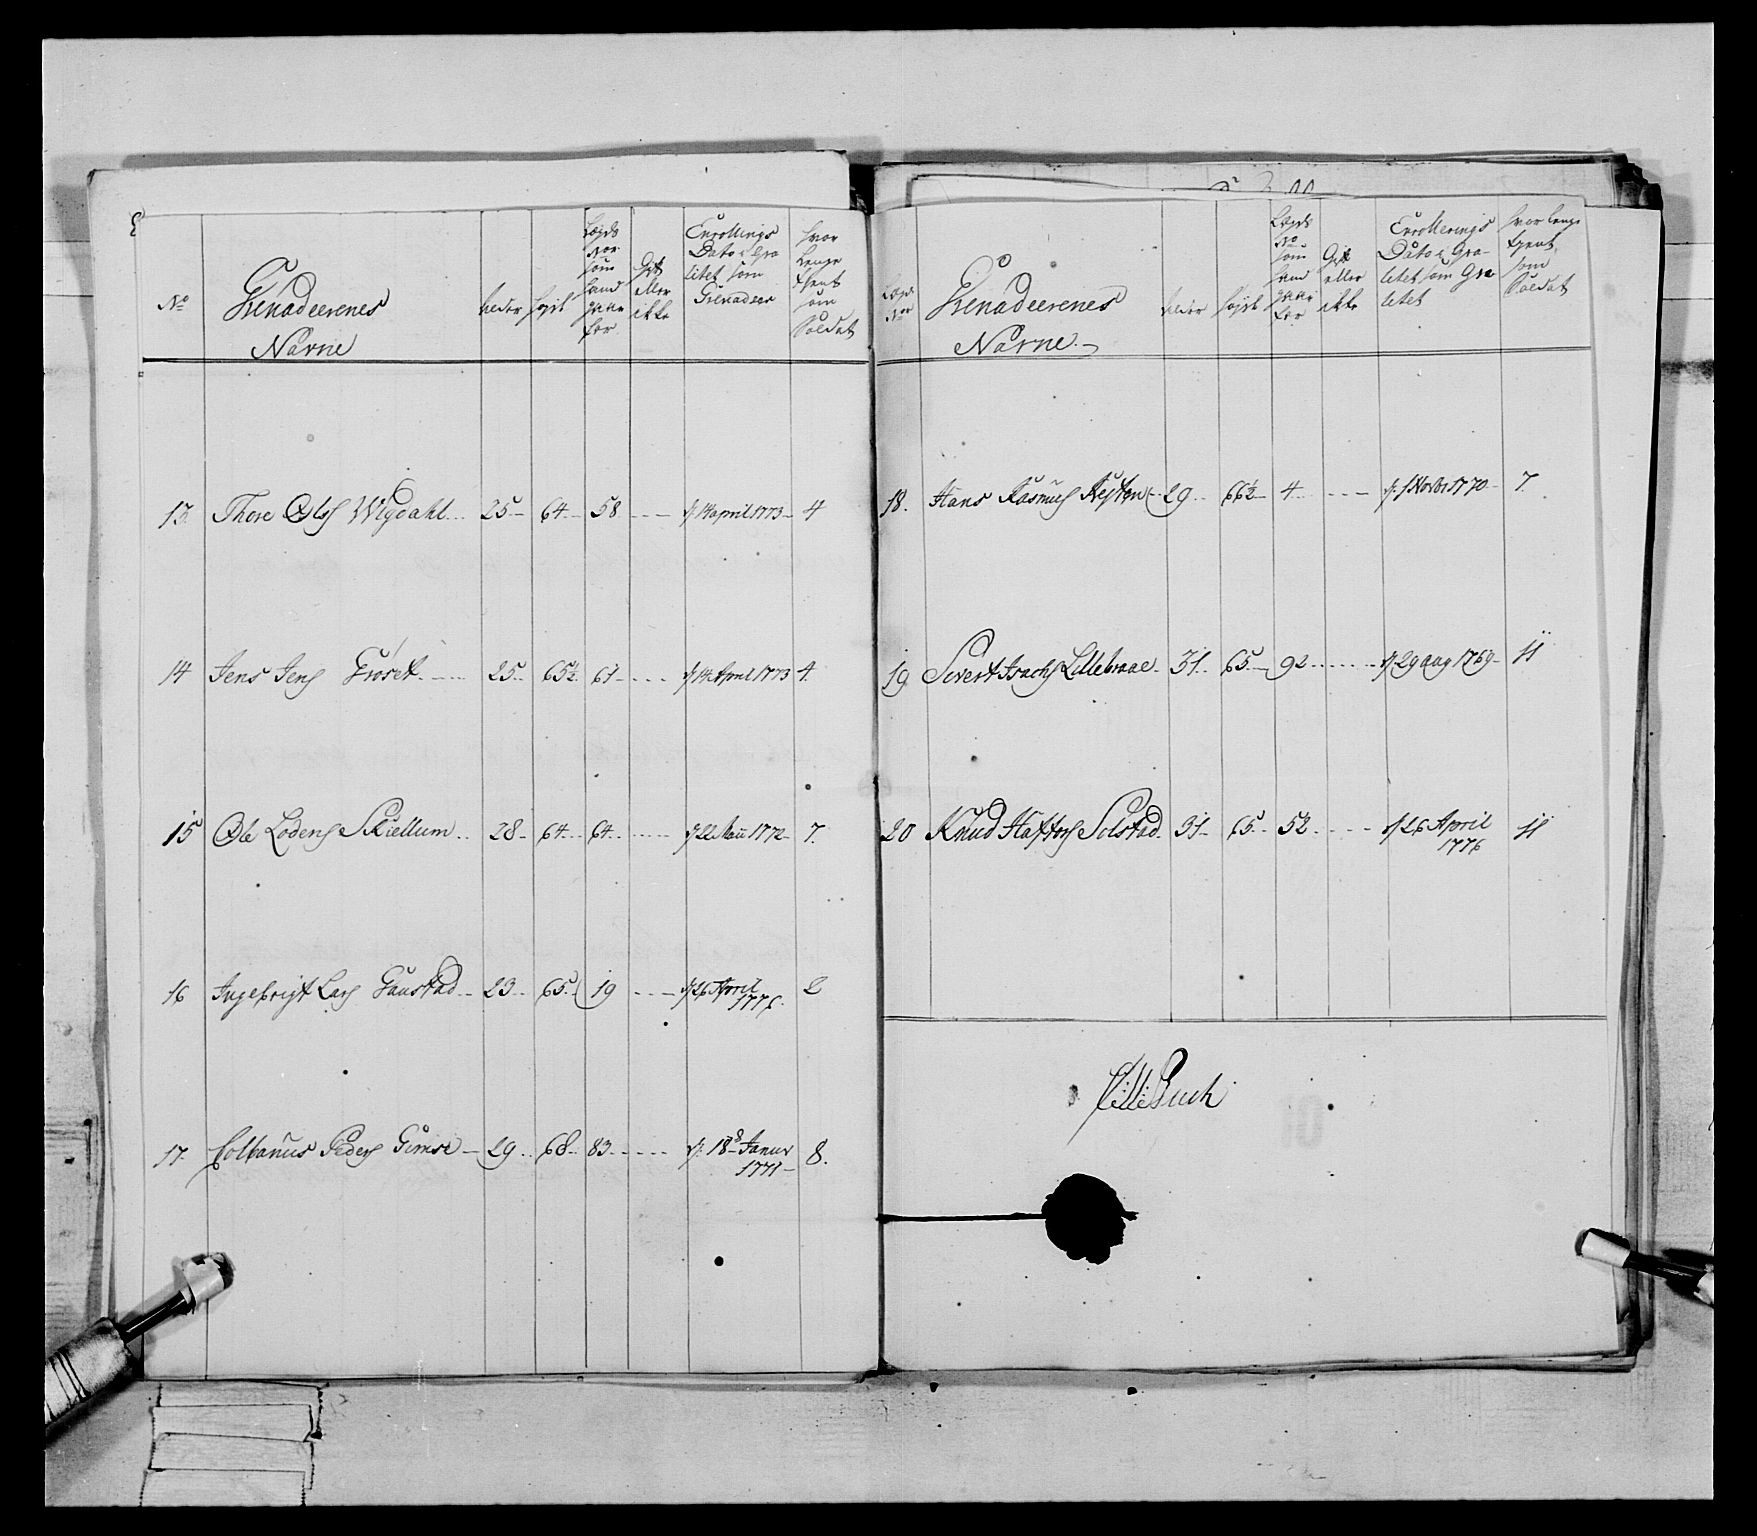 No
Grenadeerenes
Navne
Alder
Høyde
Lægds
Nor
som
hand
gaar
for
Gift
eller
ikke
Enrollings
Dato i Qva
litet som
Grenadeer
Hvor
Lenge
tient
som
Soldat
13. Thore Ols Wigdahl 25 64 58 d. 14 april 1773 4
14 Jens Jens Grøset 25 65½ 61 d. 14 April 1773 4.
15 Ole Lodens Skiellum 28 64 64 d. 22 Maii 1772 7.
16 Ingebrigt Lars Gaustad 23 65 19 d. 26 April
1776. 2
17. Colbanus Peders Gimse 29 68 83 d. 18 Janur
1771 8.
Lægds
Nor
Grenadeerenes
Navne
Alder
Høyde
Lægds
No
som
hand
gaar
for
Gift
eller
ikke
Enrollerings
Dato i Qva-
litet som Gre
litet
Hvor lenge
tient
som
Soldat
18. Hans Rasmus 29 66½ 4 d. 1 Novbr 1770 7.
19. Sivert Isachs Lillebraae 31 65 92 d. 29 aug 1769 11
20 Knud Haftors Solstad 31 65 52 d. 26 April
1776 11